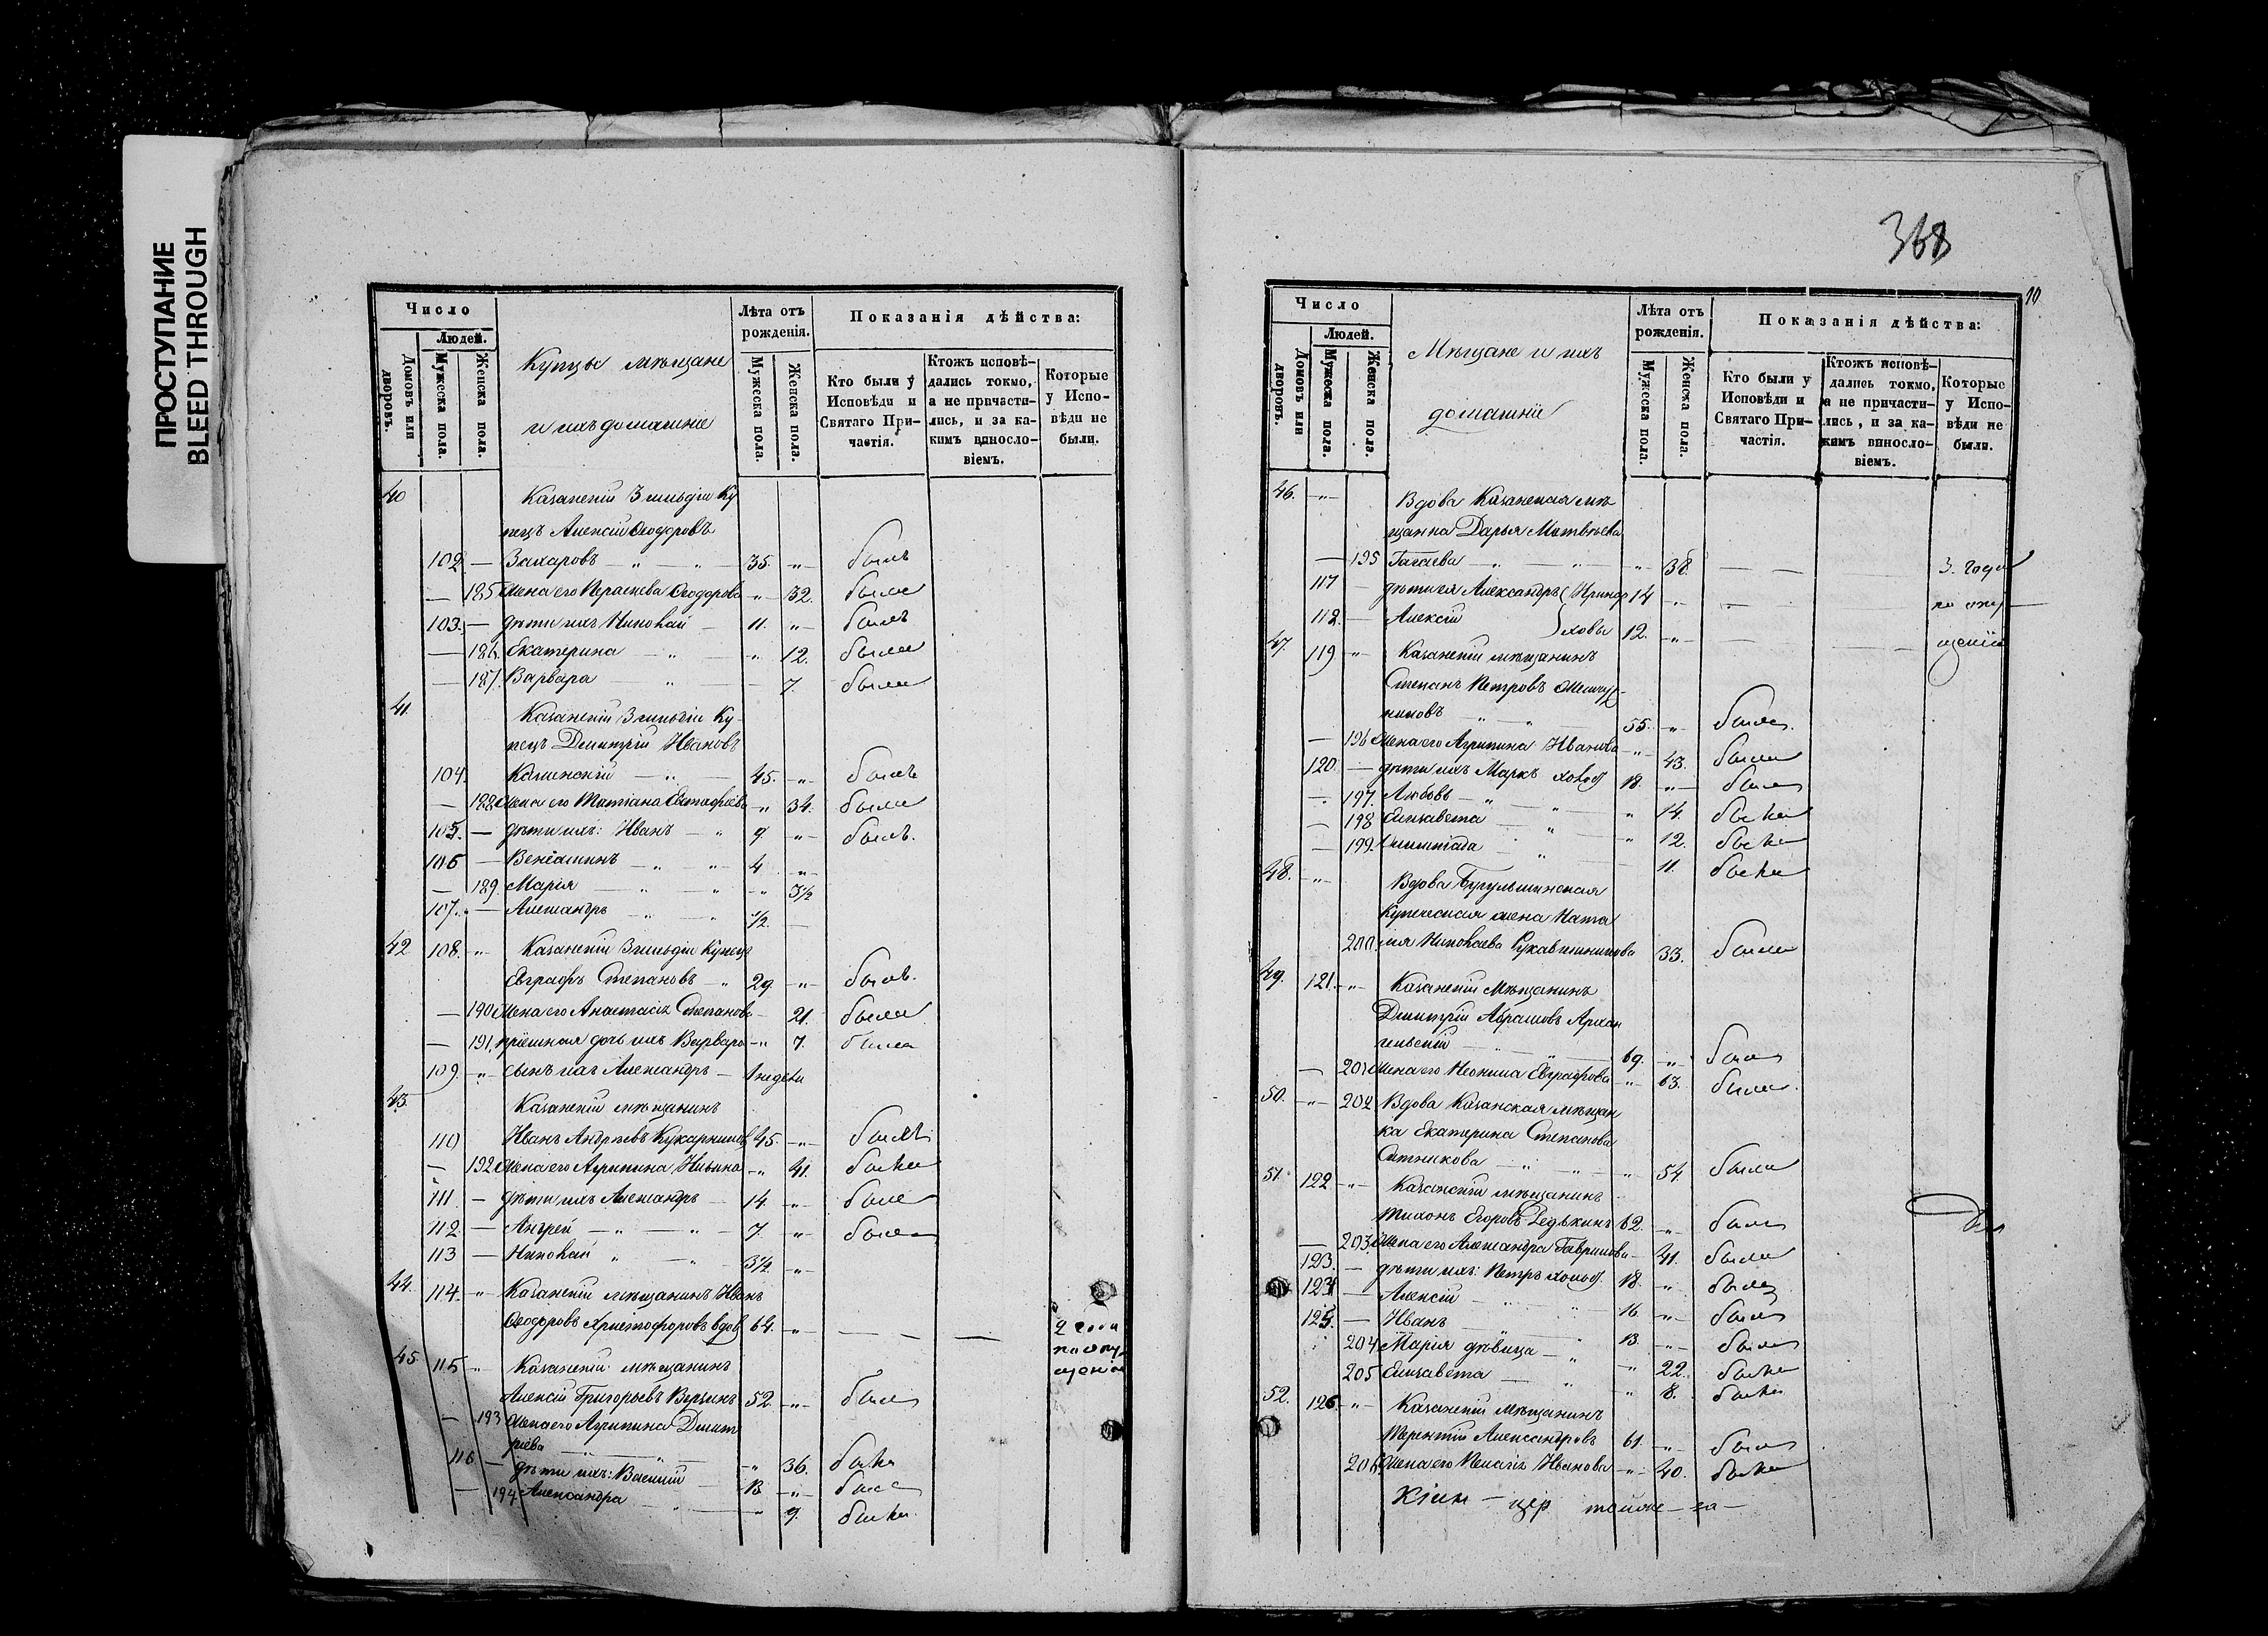 ПРОСТУПАНИЕ
BLEED THROUGH
Число
Людей.
Домовъ или дворовъ.
Мужеска пола.
Женска пола.
Купцы мѣщане
и ихъ домашніе
Лѣта отъ рожденія.
Мужеска пола.
Женска пола.
Показанія дѣйства:
Кто были у Исповѣди и Святаго Причастія.
Ктожъ исповѣдались токмо, а не причастились, и за какимъ винословіемъ.
Которые у Исповѣди не были.
40 Казанскій 3 гильдіи Ку
пецъ Алексій Ѳеодоровъ
102 — Захаровъ — " — 35. — " — былъ
— 185 Жена его Параскева Ѳеодорова — " — 32. была
103. — дѣти ихъ Николай — 11. — " — былъ
— 186. Екатерина — " — " 12. была
— 187. Варвара — " — 7. была
41. Казанскій 3 гильдіи Ку-
пецъ Димитрій Ивановъ
104. — " — 45. — " — былъ
— 188 Жена его Татіана Евстафіева — " 34. была
105. — дѣти ихъ: Иванъ — " 9 — " — былъ.
106 — Веніаминъ — " — " — 4 — " —
— 189. Марія — " — " — " — 3½
107. — Александръ — " — " ½. —
42 108. — " — Казанскій 3 гильдіи Купецъ
Евграфъ Степановъ — " 29. — " — былъ.
— 190 Жена его Анастасія Степанова — 21. была
— 191. пріемная дочь ихъ Варвара — " — 7. была
109. — " — сынъ ихъ Александръ — 1 недѣли
43. Казанскій мѣщанинъ
110 Иванъ Андреевъ 45. — " — былъ
— 192 Жена его Агрипина Ильина — " — 41. была
111 — дѣти ихъ Александръ — 14. — " — былъ
112 — Андрей — " — " — 7. — " — былъ
113 — Николай " — " — 3½ — " —
44. 114. — " — Казанскій мѣщанинъ Иванъ
Ѳеодоровъ Христофоровъ вдов 64. — " — — — — 2 года
по опу
щенію
45. 115 — " — Казанскій мѣщанинъ
Алексій Григорьевъ 52. — " — былъ
— 193 Жена его Агрипина Димит
ріева — " — " 36. была
116 — дѣти ихъ: Василій — 13 — " — былъ
— 194 Александра — " — " 9. была
368
10
Число
Людей.
Домовъ или дворовъ.
Мужеска пола.
Женска пола.
Мѣщане и ихъ
домашніе
Лѣта отъ рожденія.
Мужеска пола.
Женска пола.
Показанія дѣйства:
Кто были у Исповѣди и Святаго Причастія.
Ктожъ исповѣдались токмо, а не причастились, и за какимъ винословіемъ.
Которые у Исповѣди не были.
46. — " — Вдова Казанская мѣ
щанка Дарья Матвѣева
— 195 — " — " — " 38. — — 3. года
117 — дѣти ея Александръ 14 — " — — по опу
118. — Алексій 12. — " — — щенію
47. 119 — " — Казанскій мѣщанинъ
Степанъ Петровъ
— " — " — 55. — " былъ.
— 196 Жена его Агрипина Иванова — " — 43. была
120. — дѣти ихъ Маркъ холос 18. — " — былъ
— 197. Любовь — " — " — " 14. была
— 198 Елисавета — " — " 12. была
— 199. Олимпіада — " — 11. была
48. — " — Вдова Бугульминская
Купеческая жена Ната
200. лія Николаева Рукавишникова 33. была
49. 121. — " — Казанскій Мѣщанинъ
Димитрій Абрамовъ Архан
гельскій — " — 69. — " — былъ
— 201 Жена его Неонила Евграфова — " — 63. была.
50. — " — 202 Вдова Казанская мѣщан
ка Екатерина Степанова
Ситникова — " — " — " 54. была
51. 122 — " — Казанскій мѣщанинъ
Тихонъ Егоровъ Редькинъ 62. — " — былъ
— 203 Жена его Александра Гаврилова — 41. была
123. — дѣти ихъ: Петръ холос 18. — " былъ
124 — Алексій — " 16 — " — былъ
125. — Иванъ — " 13 — " — былъ
204 Марія дѣвица — " — " 22. была
205 Елисавета — " — " 8. была
52. 126. — " — Казанскій мѣщанинъ
Терентій Александровъ 61. — " — былъ
206 Жена его Пелагія Иванова — " — 40. была